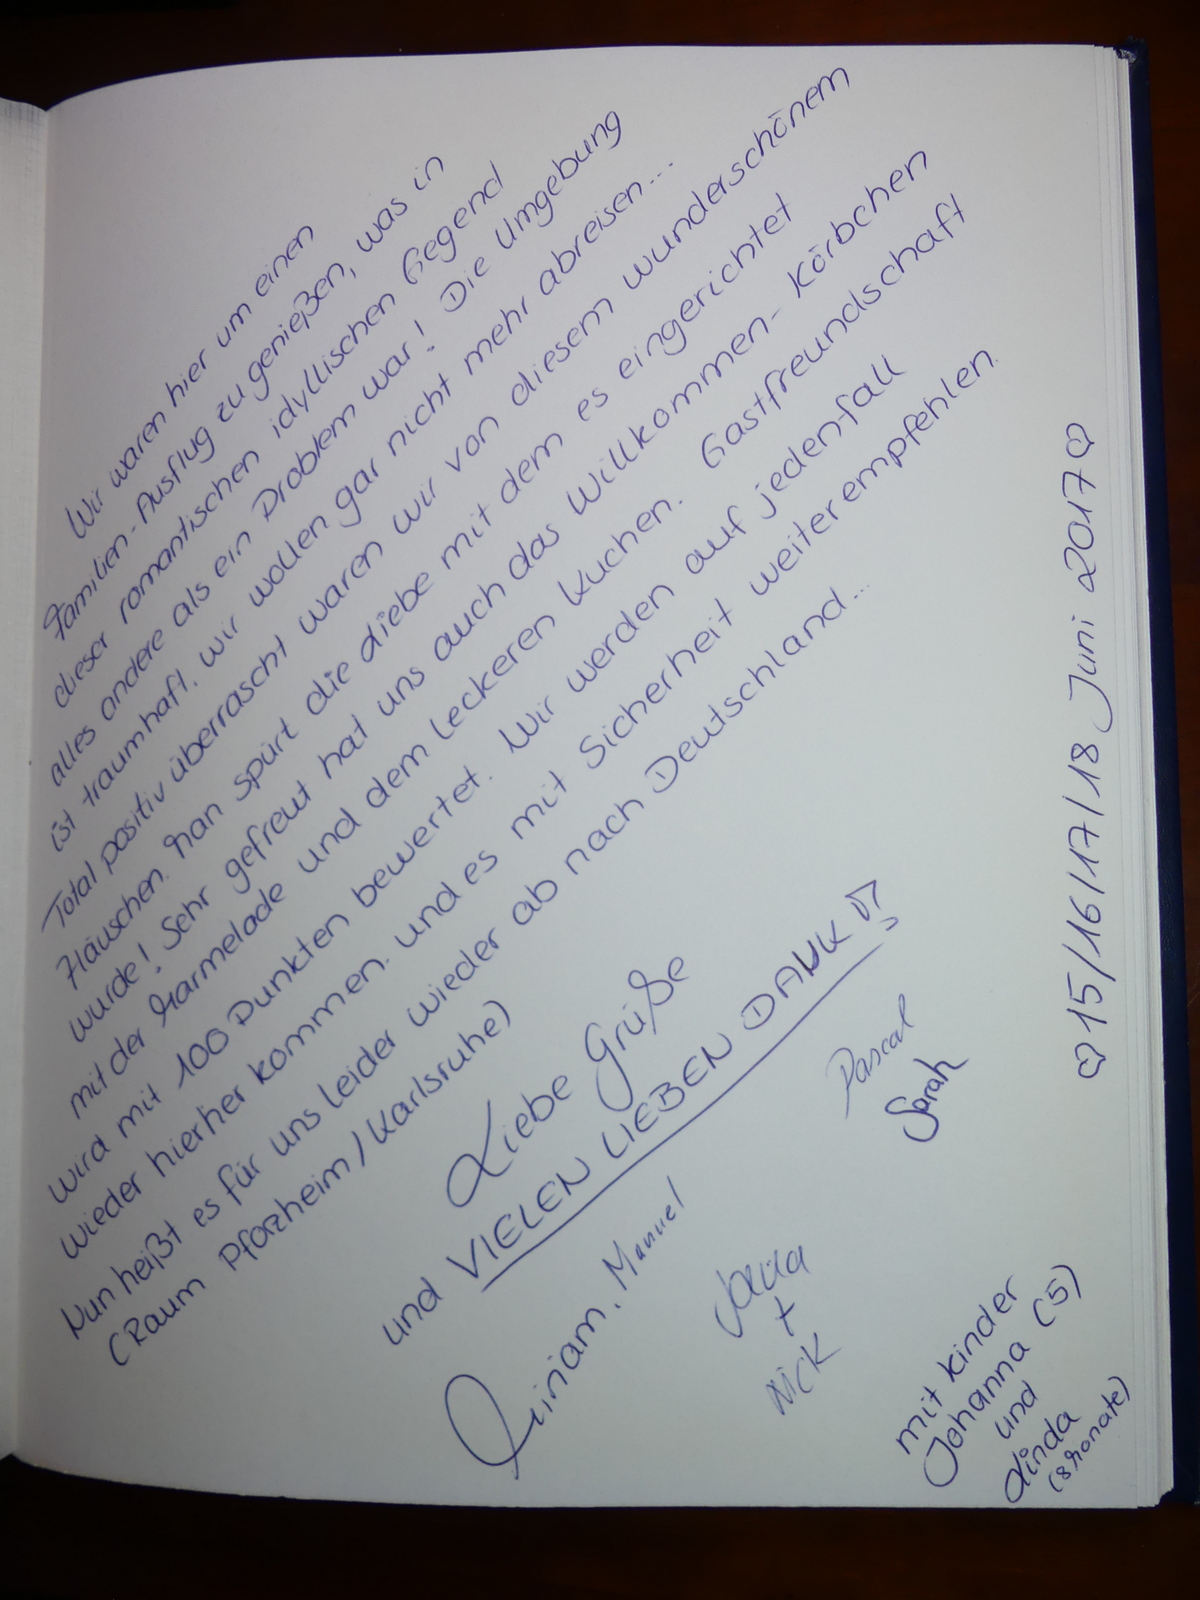 Wir waren hier um einen
Familien-Ausflug zu genießen, was in
dieser romantischen idyllischen Gegend
alles andere als ein Problem war! Die Umgebung
ist traumhaft, wir wollen gar nicht mehr abreisen...
Total positiv überrascht waren wir von diesem wunderschönem
Häuschen. Man spürt die Liebe mit dem es eingerichtet
wurde! Sehr gefreut hat uns auch das Willkommen-Körbchen
mit der Marmelade und dem leckeren Kuchen. Gastfreundschaft
wird mit 100 Punkten bewertet. Wir werden auf jedenfall
wieder hierher kommen. und es mit Sicherheit weiterempfehlen.
Nun heißt es für uns leider wieder ab nach Deutschland...
(Raum Pforzheim / Karlsruhe)
Liebe Grüße
und VIELEN LIEBEN DANK
Miriam, Manuel
Pascal
Sarah
+
Nick
mit Kinder
Johanna (5)
und
Linda
(8 Monate)
♡ 15/16/17/18 Juni 2017 ♡